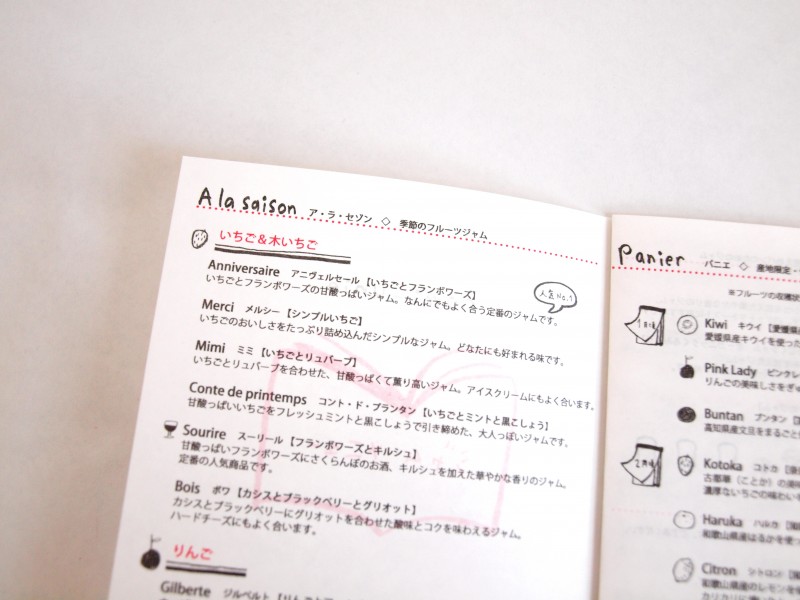 A la saison ア・ラ・セゾン ◇ 季節のフルーツジャム
いちご&木いちご
Anniversaire アニヴェルセール【いちごとフランボワーズ】
いちごとフランボワーズの甘酸っぱいジャム。なんにでもよく合う定番のジャムです。
人気No.1
Merci メルシー【シンプルいちご】
いちごのおいしさをたっぷり詰め込んだシンプルなジャム。どなたにも好まれる味です。
Mimi ミミ【いちごとリュバーブ】
いちごとリュバーブを合わせた、甘酸っぱくて薫り高いジャム。アイスクリームにもよく合います。
Conte de printemps コント・ド・プランタン【いちごとミントと黒こしょう】
甘酸っぱいいちごをフレッシュミントと黒こしょうで引き締めた、大人っぽいジャムです。
Sourire スーリール【フランボワーズとキルシュ】
甘酸っぱいフランボワーズにさくらんぼのお酒、キルシュを加えた華やかな香りのジャム。
定番の人気商品です。
Bois ボワ【カシスとブラックベリーとグリオット】
カシスとブラックベリーにグリオットを合わせた酸味とコクを味わえるジャム。
ハードチーズにもよく合います。
りんご
Gilberte ジルベルト【りんごと
Panier パニエ ◇ 産地限定
※フルーツの収穫状
1月頃
Kiwi キウイ【愛媛県
愛媛県産キウイを使った
Pink Lady ピンクレ
りんごの美味しさをぎ
Buntan ブンタン【
高知県産文旦をまるごと
2月頃
Kotoka コトカ【
古都華（ことか）の
濃厚ないちごの味わい
Haruka ハルカ【
和歌山県産はるかを使っ
Citron シトロン【
和歌山県産のレモンを
カリカリに